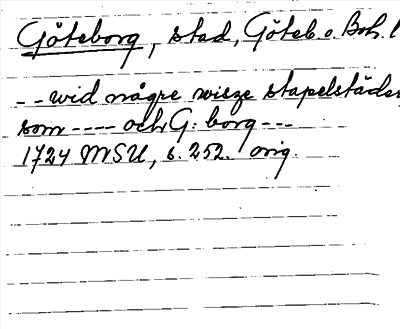 Göteborg, stad, Göteb. o. Boh. l
-- wid någre wisze stapelstäder,
som ---- och G: borg ---
1724 MSU, s. 252. orig.